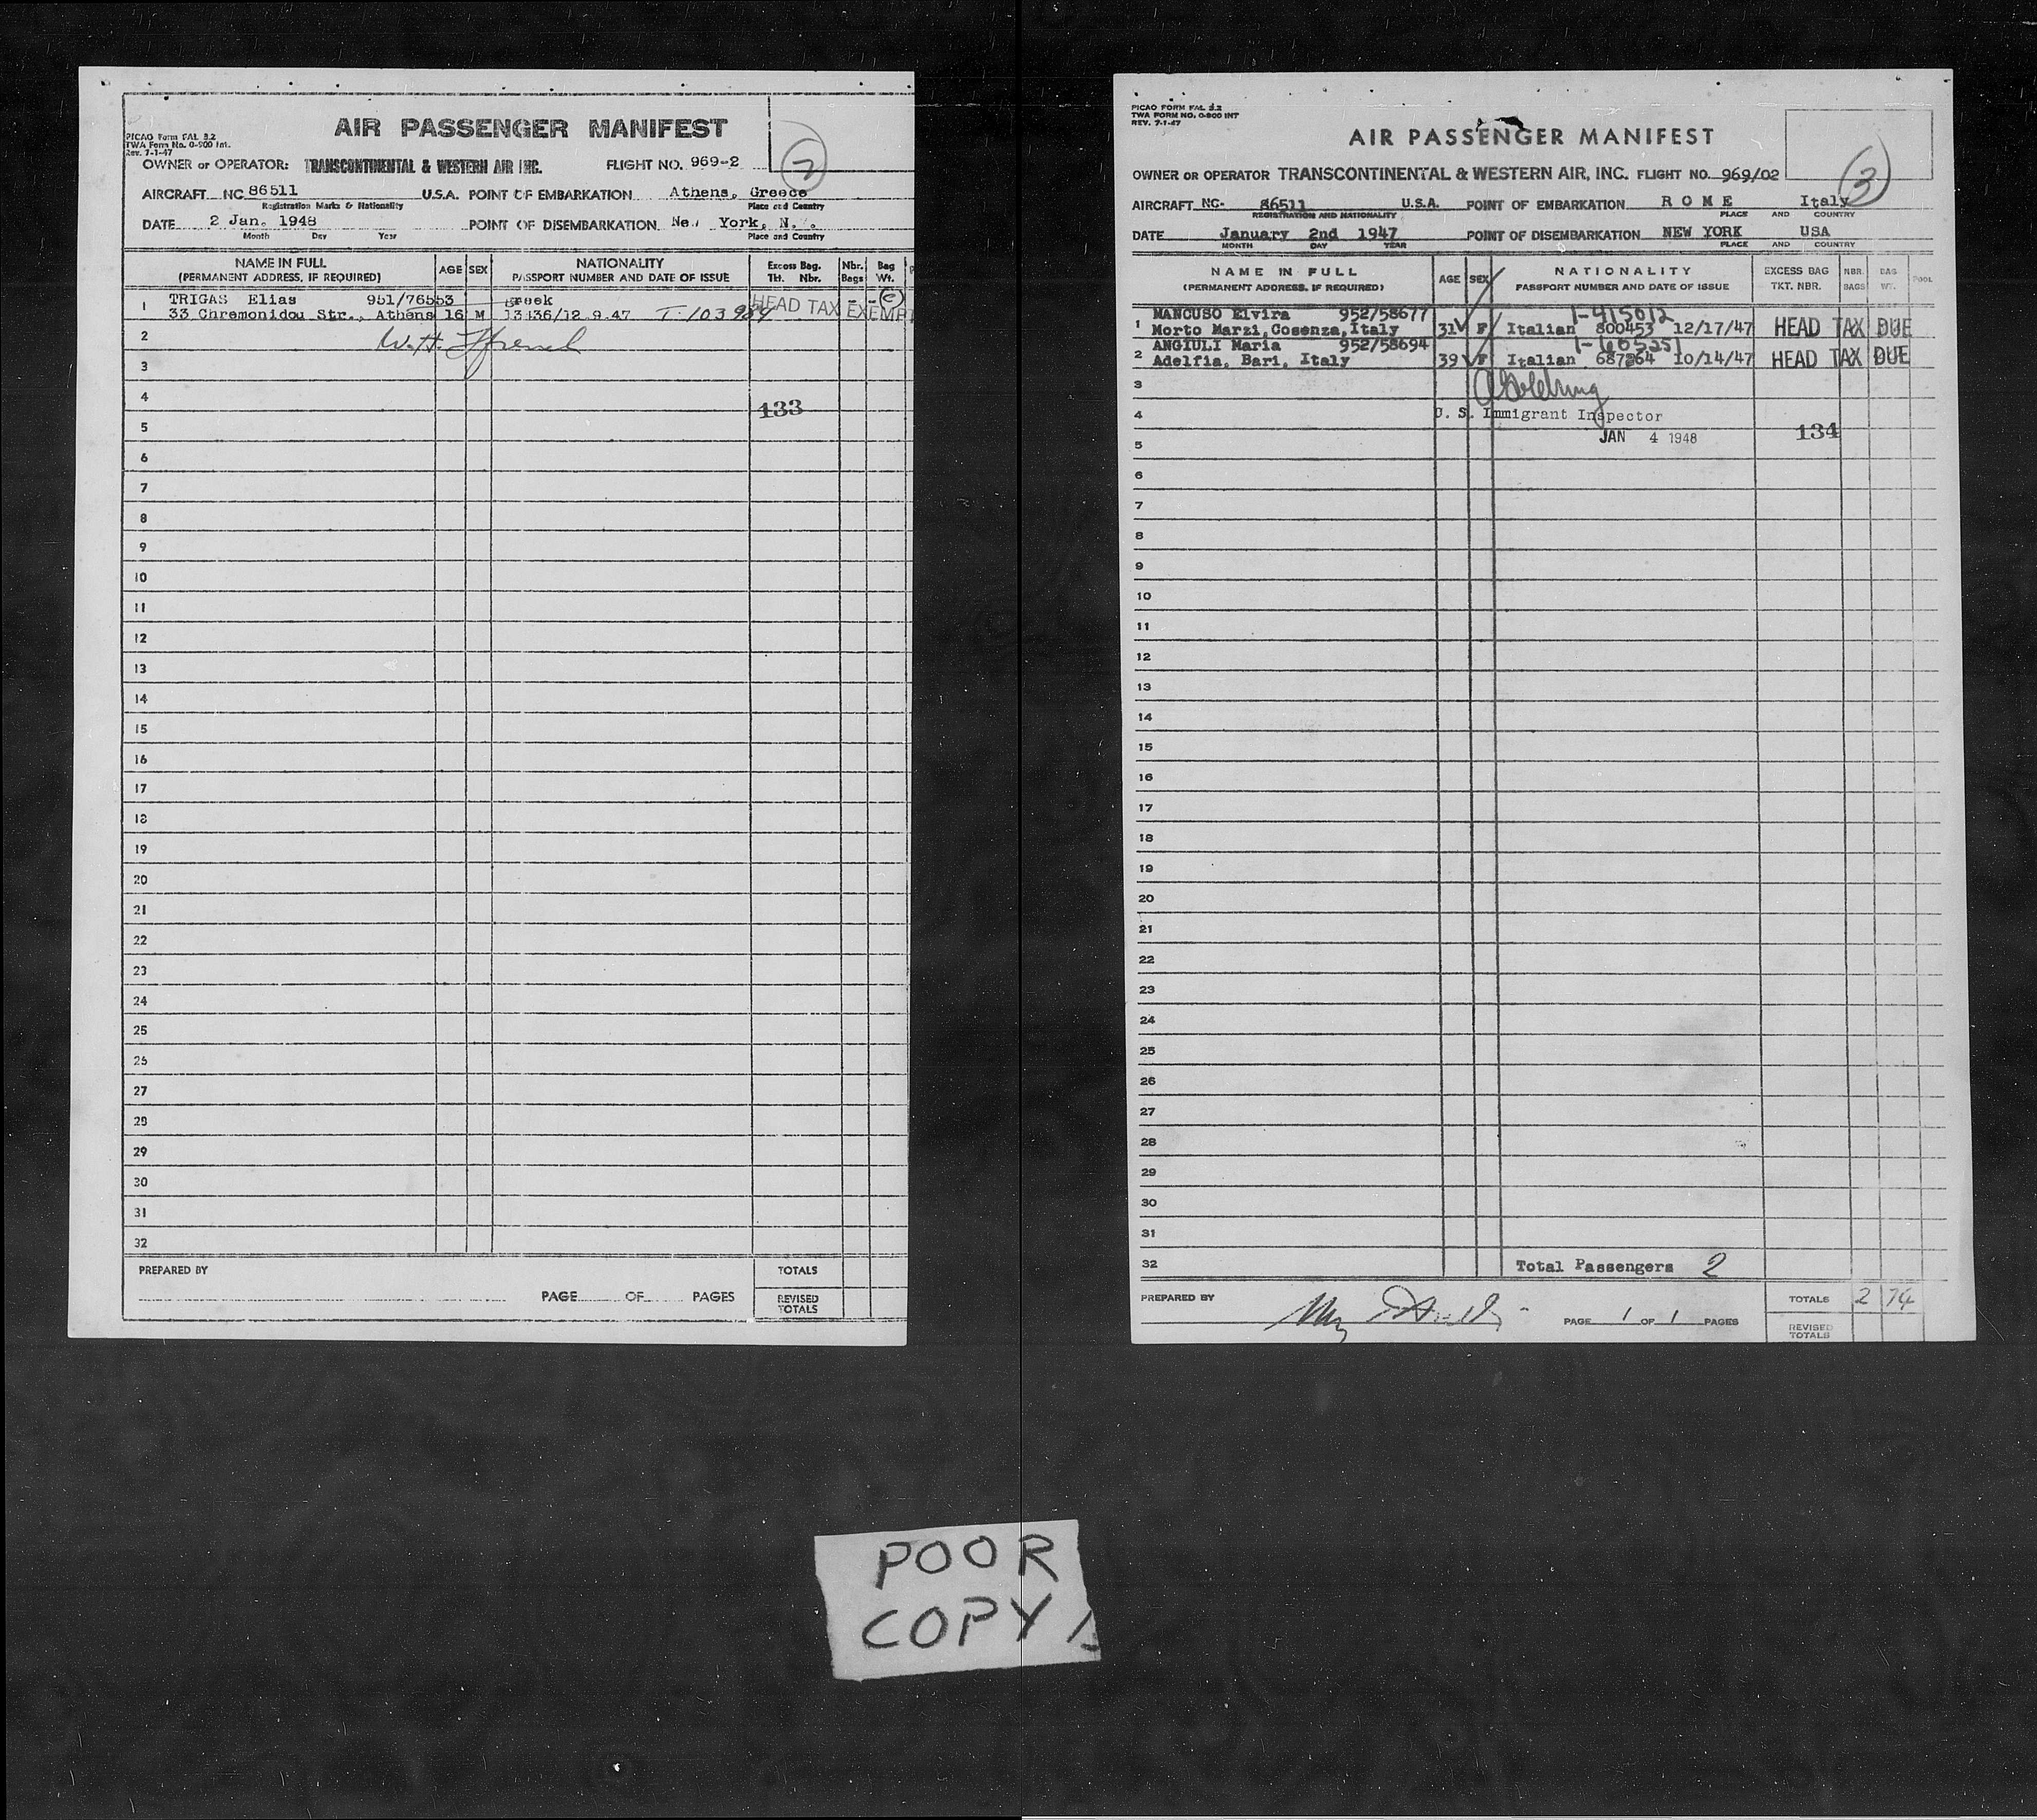 PICAO Form FAL 3.2
TWA Form No. 0-900 Int.
Rev. 7-1-47
AIR PASSENGER MANIFEST
2
OWNER or OPERATOR: TRANSCONTINENTAL & WESTERN AIR INC. FLIGHT NO. 969-2
AIRCRAFT NC 86511 U.S.A. POINT OF EMBARKATION Athens, Greece
Registration Marks & Nationality Place and Country
DATE 2 Jan. 1948 POINT OF DISEMBARKATION New York, N.
Month Day Year Place and Country
NAME IN FULL AGE SEX NATIONALITY Excess Bag. Nbr. Bag
(PERMANENT ADDRESS, IF REQUIRED) PASSPORT NUMBER AND DATE OF ISSUE Tkt. Nbr. Bags Wt.
1 TRIGAS Elias 951/76553 Greek HEAD TAX EXEMPT
33 Chremonidou Str., Athens 16 M 13436/12.9.47 T-103984
2
3
4
133
5
6
7
8
9
10
11
12
13
14
15
16
17
18
19
20
21
22
23
24
25
25
27
28
29
30
31
32
PREPARED BY TOTALS
PAGE OF PAGES REVISED TOTALS
PICAO FORM FAL 3.2
TWA FORM NO. 0-900 INT
REV. 7-1-47
AIR PASSENGER MANIFEST
3
OWNER OR OPERATOR TRANSCONTINENTAL & WESTERN AIR, INC. FLIGHT NO. 969/02
AIRCRAFT NC- 86511 U.S.A. POINT OF EMBARKATION ROME Italy
REGISTRATION AND NATIONALITY PLACE AND COUNTRY
DATE January 2nd 1947 POINT OF DISEMBARKATION NEW YORK USA
MONTH DAY YEAR PLACE AND COUNTRY
NAME IN FULL AGE SEX NATIONALITY EXCESS BAG NBR. BAG POOL
(PERMANENT ADDRESS, IF REQUIRED) PASSPORT NUMBER AND DATE OF ISSUE TKT. NBR. BAGS WT.
MANCUSO Elvira 952/58677 1-415012
1 Morto Marzi, Cosenza, Italy 31 F Italian 800453 12/17/47 HEAD TAX DUE
ANGIULI Maria 952/58694 1-605251
2 Adelfia, Bari, Italy 39 F Italian 687264 10/14/47 HEAD TAX DUE
3
4 U. S. Immigrant Inspector
5 JAN 4 1948 134
6
7
8
9
10
11
12
13
14
15
16
17
18
19
20
21
22
23
24
25
26
27
28
29
30
31
32 Total Passengers 2
PREPARED BY PAGE 1 OF 1 PAGES TOTALS 2 74
REVISED TOTALS
POOR
COPY